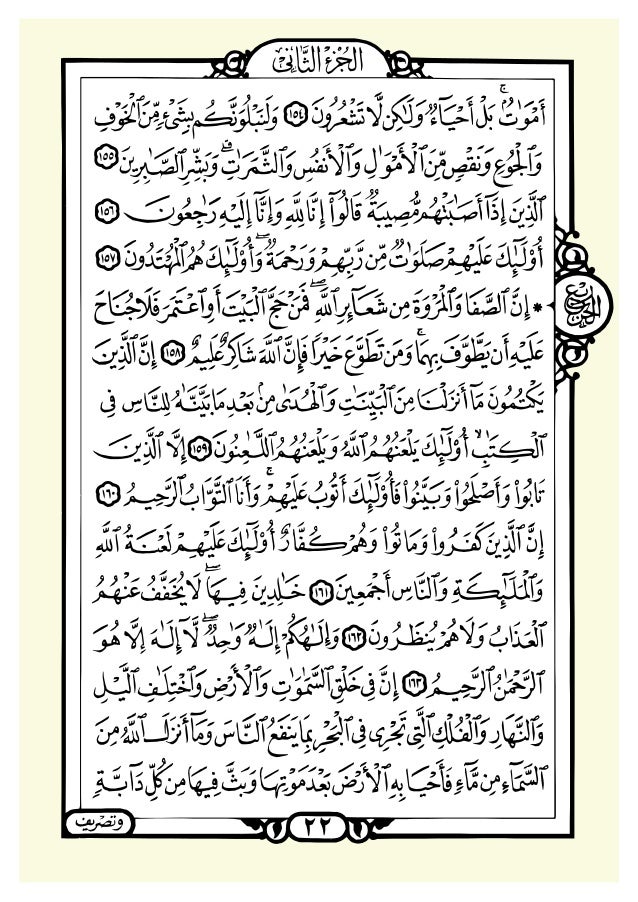 الجزء الثاني
أَمْوَٰتٌۢ ۚ بَلْ أَحْيَآءٌ وَلَٰكِن لَّا تَشْعُرُونَ ١٥٤ وَلَنَبْلُوَنَّكُم بِشَىْءٍ مِّنَ ٱلْخَوْفِ
وَٱلْجُوعِ وَنَقْصٍ مِّنَ ٱلْأَمْوَٰلِ وَٱلْأَنفُسِ وَٱلثَّمَرَٰتِ ۗ وَبَشِّرِ ٱلصَّٰبِرِينَ ١٥٥
ٱلَّذِينَ إِذَآ أَصَٰبَتْهُم مُّصِيبَةٌ قَالُوٓا۟ إِنَّا لِلَّهِ وَإِنَّآ إِلَيْهِ رَٰجِعُونَ ١٥٦
أُو۟لَٰٓئِكَ عَلَيْهِمْ صَلَوَٰتٌ مِّن رَّبِّهِمْ وَرَحْمَةٌ ۖ وَأُو۟لَٰٓئِكَ هُمُ ٱلْمُهْتَدُونَ ١٥٧
* إِنَّ ٱلصَّفَا وَٱلْمَرْوَةَ مِن شَعَآئِرِ ٱللَّهِ ۖ فَمَنْ حَجَّ ٱلْبَيْتَ أَوِ ٱعْتَمَرَ فَلَا جُنَاحَ
ربع الحزب
عَلَيْهِ أَن يَطَّوَّفَ بِهِمَا ۚ وَمَن تَطَوَّعَ خَيْرًا فَإِنَّ ٱللَّهَ شَاكِرٌ عَلِيمٌ ١٥٨ إِنَّ ٱلَّذِينَ
يَكْتُمُونَ مَآ أَنزَلْنَا مِنَ ٱلْبَيِّنَٰتِ وَٱلْهُدَىٰ مِنۢ بَعْدِ مَا بَيَّنَّٰهُ لِلنَّاسِ فِى
ٱلْكِتَٰبِ ۙ أُو۟لَٰٓئِكَ يَلْعَنُهُمُ ٱللَّهُ وَيَلْعَنُهُمُ ٱللَّٰعِنُونَ ١٥٩ إِلَّا ٱلَّذِينَ
تَابُوا۟ وَأَصْلَحُوا۟ وَبَيَّنُوا۟ فَأُو۟لَٰٓئِكَ أَتُوبُ عَلَيْهِمْ ۚ وَأَنَا ٱلتَّوَّابُ ٱلرَّحِيمُ ١٦٠
إِنَّ ٱلَّذِينَ كَفَرُوا۟ وَمَاتُوا۟ وَهُمْ كُفَّارٌ أُو۟لَٰٓئِكَ عَلَيْهِمْ لَعْنَةُ ٱللَّهِ
وَٱلْمَلَٰٓئِكَةِ وَٱلنَّاسِ أَجْمَعِينَ ١٦١ خَٰلِدِينَ فِيهَا ۖ لَا يُخَفَّفُ عَنْهُمُ
ٱلْعَذَابُ وَلَا هُمْ يُنظَرُونَ ١٦٢ وَإِلَٰهُكُمْ إِلَٰهٌ وَٰحِدٌ ۖ لَّآ إِلَٰهَ إِلَّا هُوَ
ٱلرَّحْمَٰنُ ٱلرَّحِيمُ ١٦٣ إِنَّ فِى خَلْقِ ٱلسَّمَٰوَٰتِ وَٱلْأَرْضِ وَٱخْتِلَٰفِ ٱلَّيْلِ
وَٱلنَّهَارِ وَٱلْفُلْكِ ٱلَّتِى تَجْرِى فِى ٱلْبَحْرِ بِمَا يَنفَعُ ٱلنَّاسَ وَمَآ أَنزَلَ ٱللَّهُ مِنَ
ٱلسَّمَآءِ مِن مَّآءٍ فَأَحْيَا بِهِ ٱلْأَرْضَ بَعْدَ مَوْتِهَا وَبَثَّ فِيهَا مِن كُلِّ دَآبَّةٍ
٢٢
وتصريف